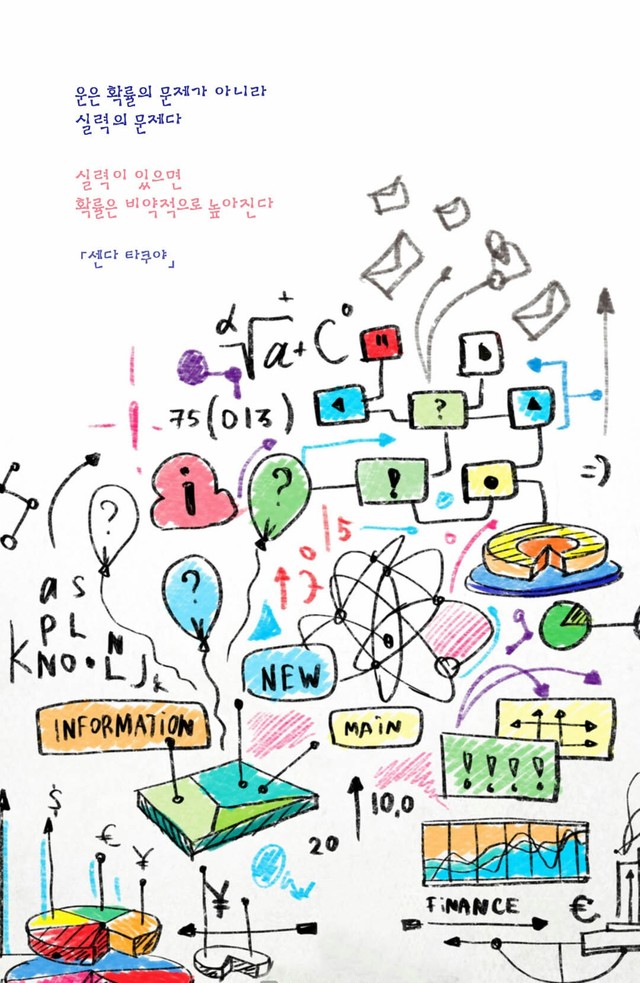 운은 확률의 문제가 아니라
실력의 문제다
실력이 있으면
확률은 비약적으로 높아진다
「센다 타쿠야」
α √a+ C°
+
"
?
75(013)
i
?
!
=)
?
15
0
7
?
a s
P L N
KNO•L
NEW
INFORMATION
MAIN
! ! ! !
10,0
$
€
¥
20
¥
FINANCE
€